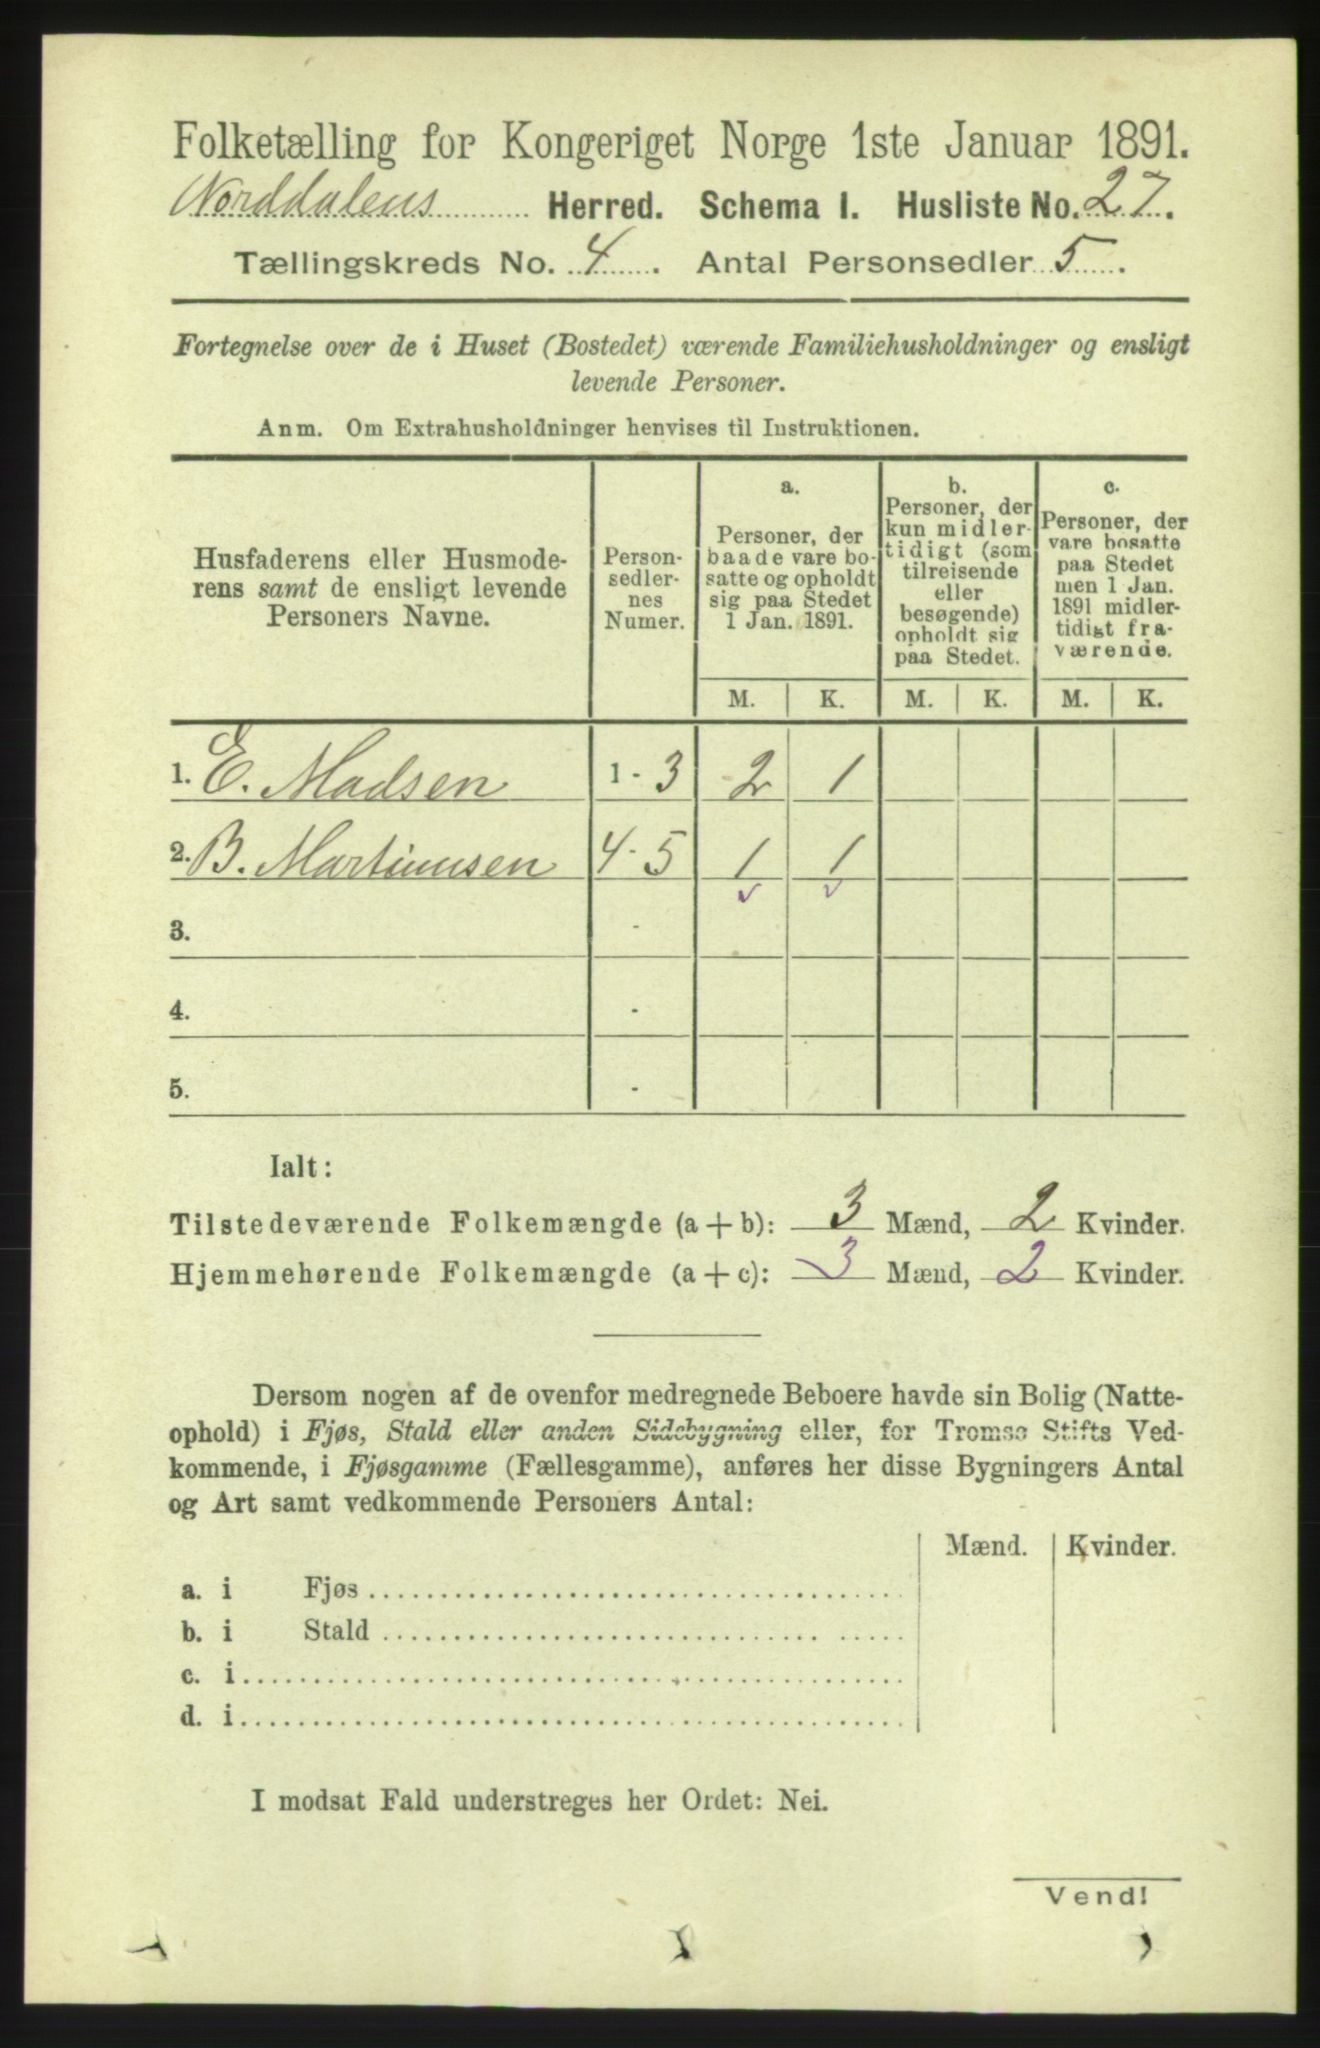 Folketælling for Kongeriget Norge 1ste Januar 1891.
Norddalens Herred. Schema I. Husliste No. 27.
Tællingskreds No. 4. Antal Personsedler 5.
Fortegnelse over de i Huset (Bostedet) værende Familiehusholdninger og ensligt
levende Personer.
Anm. Om Extrahusholdninger henvises til Instruktionen.
Husfaderens eller Husmode-
rens samt de ensligt levende
Personers Navne.
Person-
sedler-
nes
Numer.
a.
Personer, der
baade vare bo-
satte og opholdt
sig paa Stedet
1 Jan. 1891.
b.
Personer, der
kun midler-
tidigt (som
tilreisende
eller
besøgende)
opholdt sig
paa Stedet.
c.
Personer, der
vare bosatte
paa Stedet
men 1 Jan.
1891 midler-
tidigt fra-
værende.
M. K. M. K. M. K.
1. E. Madsen 1 - 3 2 1
2. B. Martinusen 4 - 5 1 1
3. -
4. -
5. -
Ialt:
Tilstedeværende Folkemængde (a + b): 3 Mænd, 2 Kvinder.
Hjemmehørende Folkemængde (a + c): 3 Mænd, 2 Kvinder.
Dersom nogen af de ovenfor medregnede Beboere havde sin Bolig (Natte-
ophold) i Fjøs, Stald eller anden Sidebygning eller, for Tromsø Stifts Ved-
kommende, i Fjøsgamme (Fællesgamme), anføres her disse Bygningers Antal
og Art samt vedkommende Personers Antal:
Mænd. Kvinder.
a. i Fjøs
b. i Stald
c. i
d. i
I modsat Fald understreges her Ordet: Nei.
Vend!